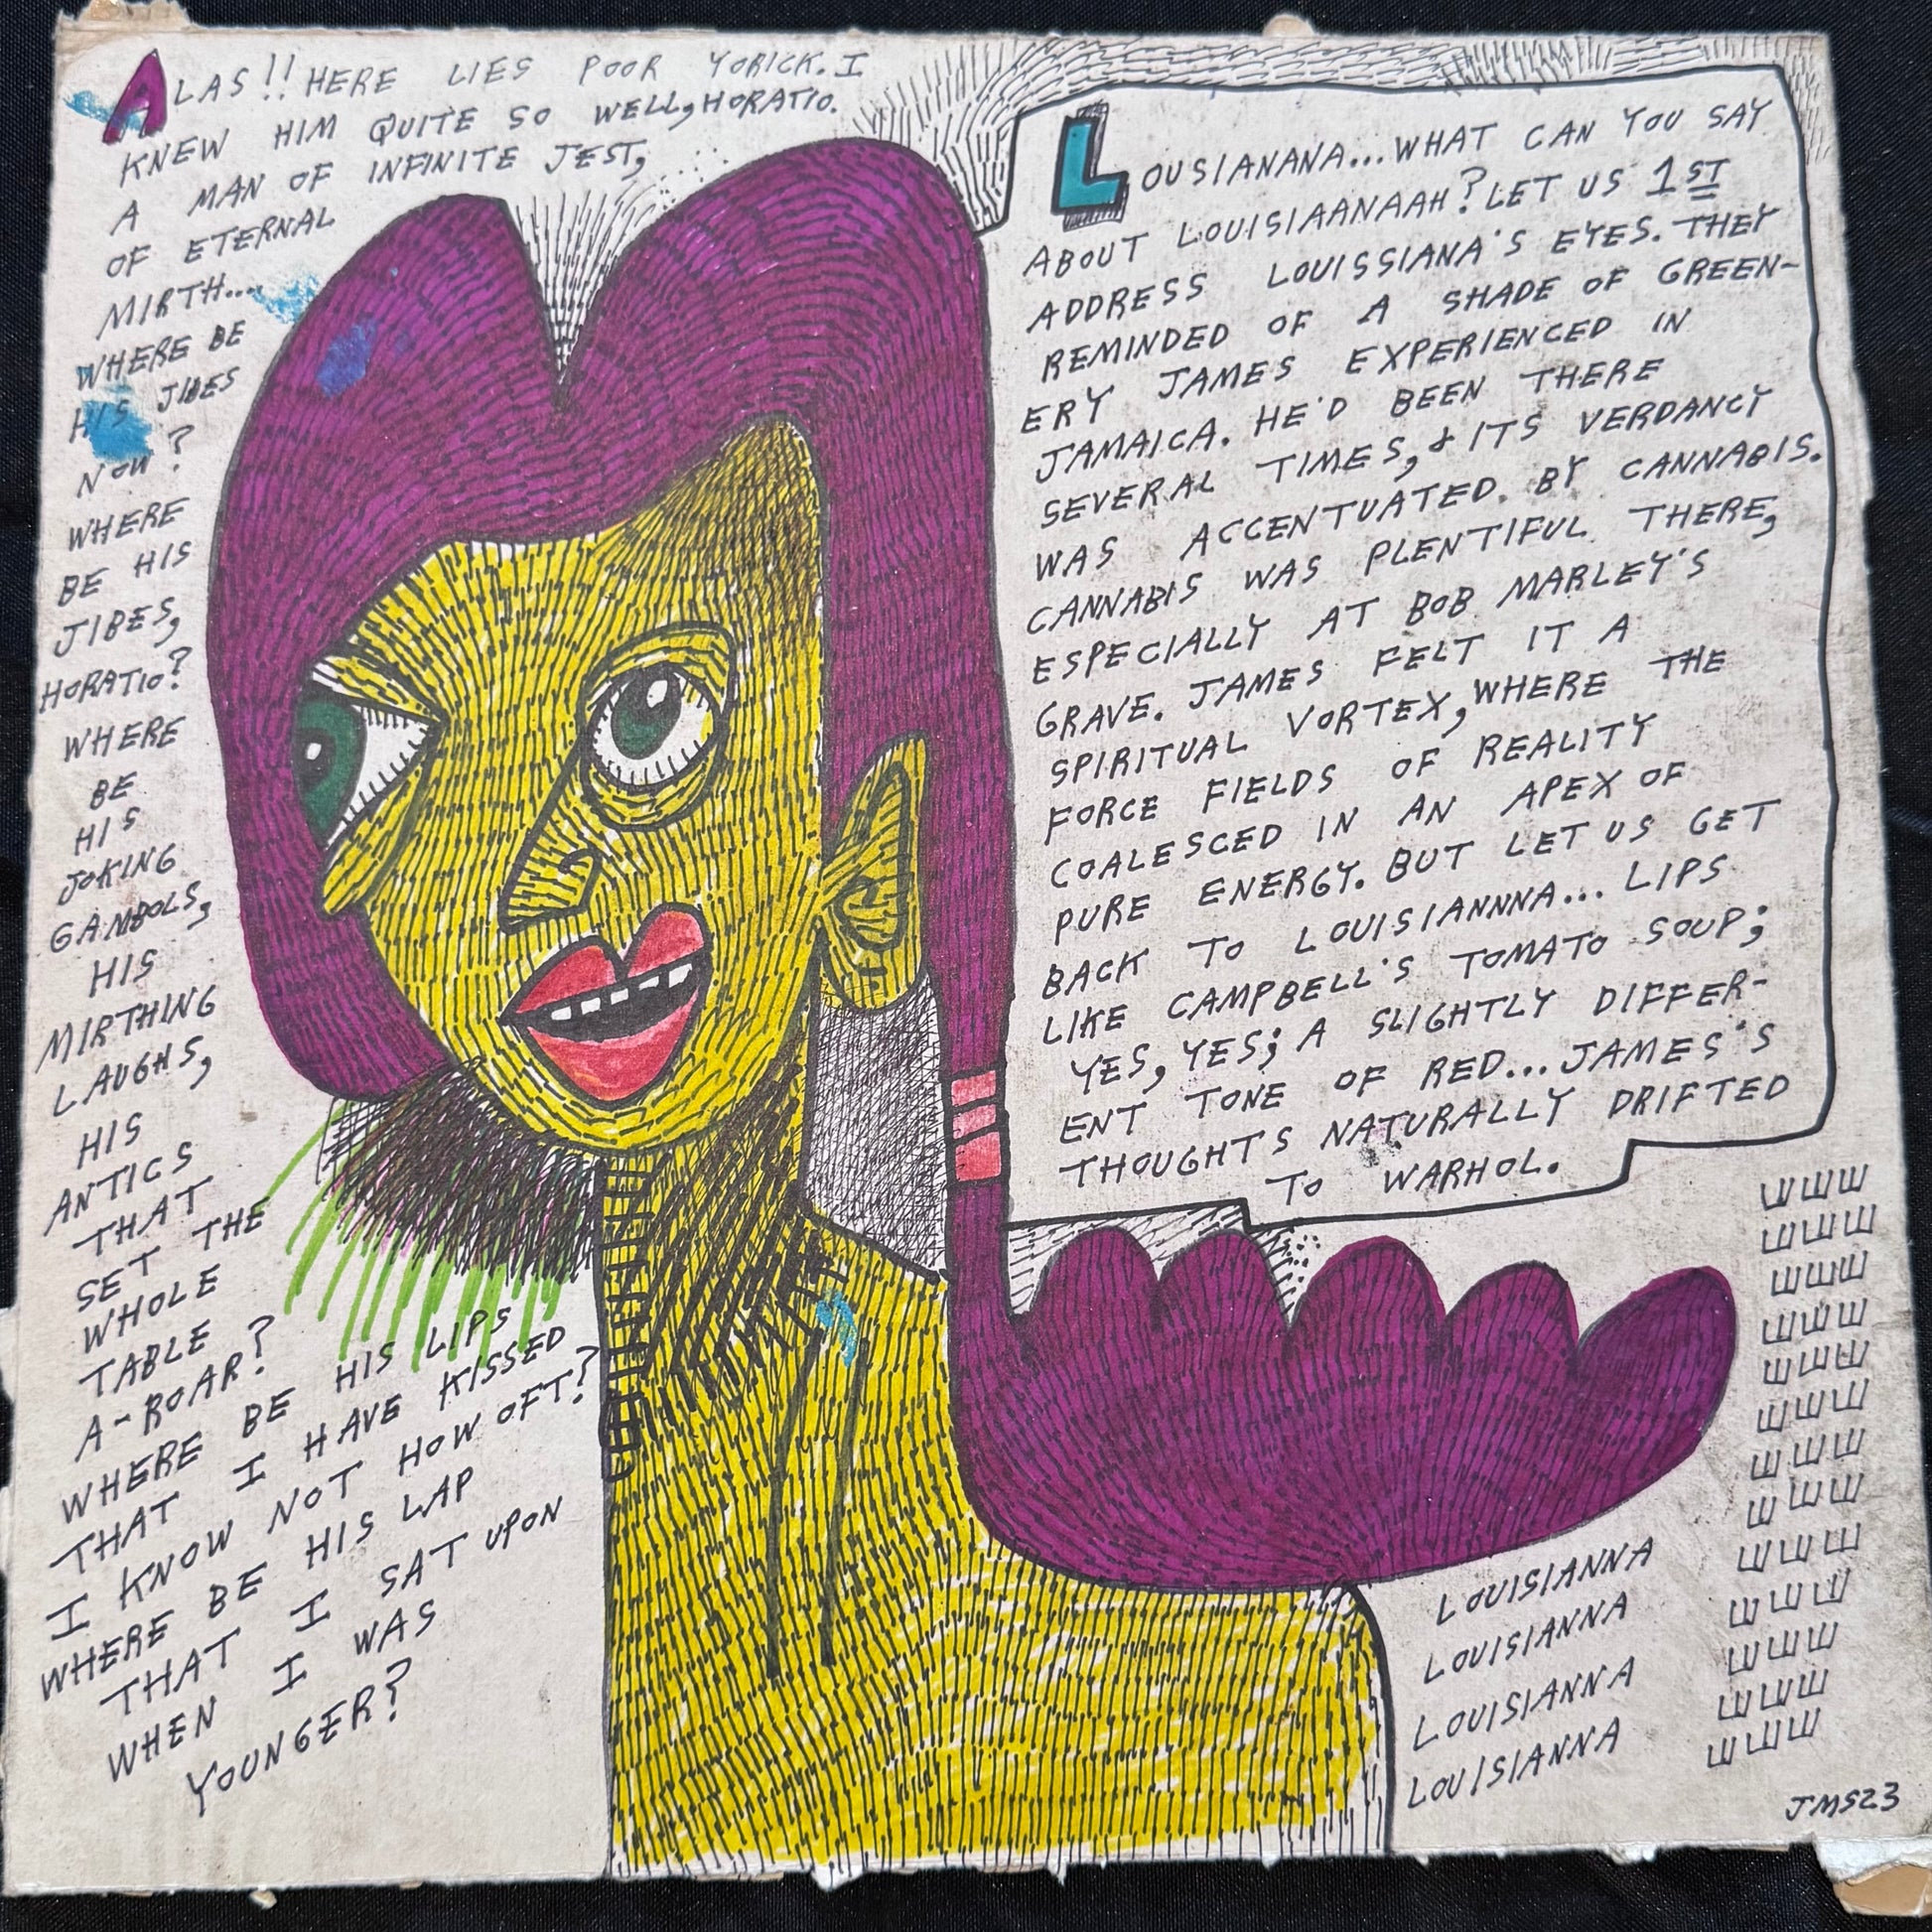 ALAS!! HERE LIES POOR YORICK. I
KNEW HIM QUITE SO WELL, HORATIO.
A MAN OF INFINITE JEST,
OF ETERNAL
MIRTH....
WHERE BE
HIS JIBES
NOW?
WHERE
BE HIS
JIBES,
HORATIO?
WHERE
BE
HIS
JOKING
GAMBOLS,
HIS
MIRTHING
LAUGHS,
HIS
ANTICS
THAT
SET THE
WHOLE
TABLE
A-ROAR?
WHERE BE HIS LIPS
THAT I HAVE KISSED
I KNOW NOT HOW OFT?
WHERE BE HIS LAP
THAT I SAT UPON
WHEN I WAS
YOUNGER?
LOUSIANANA...WHAT CAN YOU SAY
ABOUT LOUISIAANAAH? LET US 1ST
ADDRESS LOUISSIANA'S EYES. THEY
REMINDED OF A SHADE OF GREEN-
ERY JAMES EXPERIENCED IN
JAMAICA. HE'D BEEN THERE
SEVERAL TIMES, & ITS VERDANCY
WAS ACCENTUATED. BY CANNABIS.
CANNABIS WAS PLENTIFUL THERE,
ESPECIALLY AT BOB MARLEY'S
GRAVE. JAMES FELT IT A
SPIRITUAL VORTEX, WHERE THE
FORCE FIELDS OF REALITY
COALESCED IN AN APEX OF
PURE ENERGY. BUT LET US GET
BACK TO LOUISIANNNA... LIPS
LIKE CAMPBELL'S TOMATO SOUP;
YES, YES; A SLIGHTLY DIFFER-
ENT TONE OF RED...JAMES'S
THOUGHTS NATURALLY DRIFTED
TO WARHOL.
LOUISIANNA
LOUISIANNA
LOUISIANNA
LOUISIANNA
Ш Ш Ш
Ш Ш Ш
Ш Ш Ш
Ш Ш Ш
Ш Ш Ш
Ш Ш Ш
Ш Ш Ш
Ш Ш Ш
Ш Ш Ш
Ш Ш Ш
Ш Ш Ш
Ш Ш Ш
Ш Ш Ш
JMS23